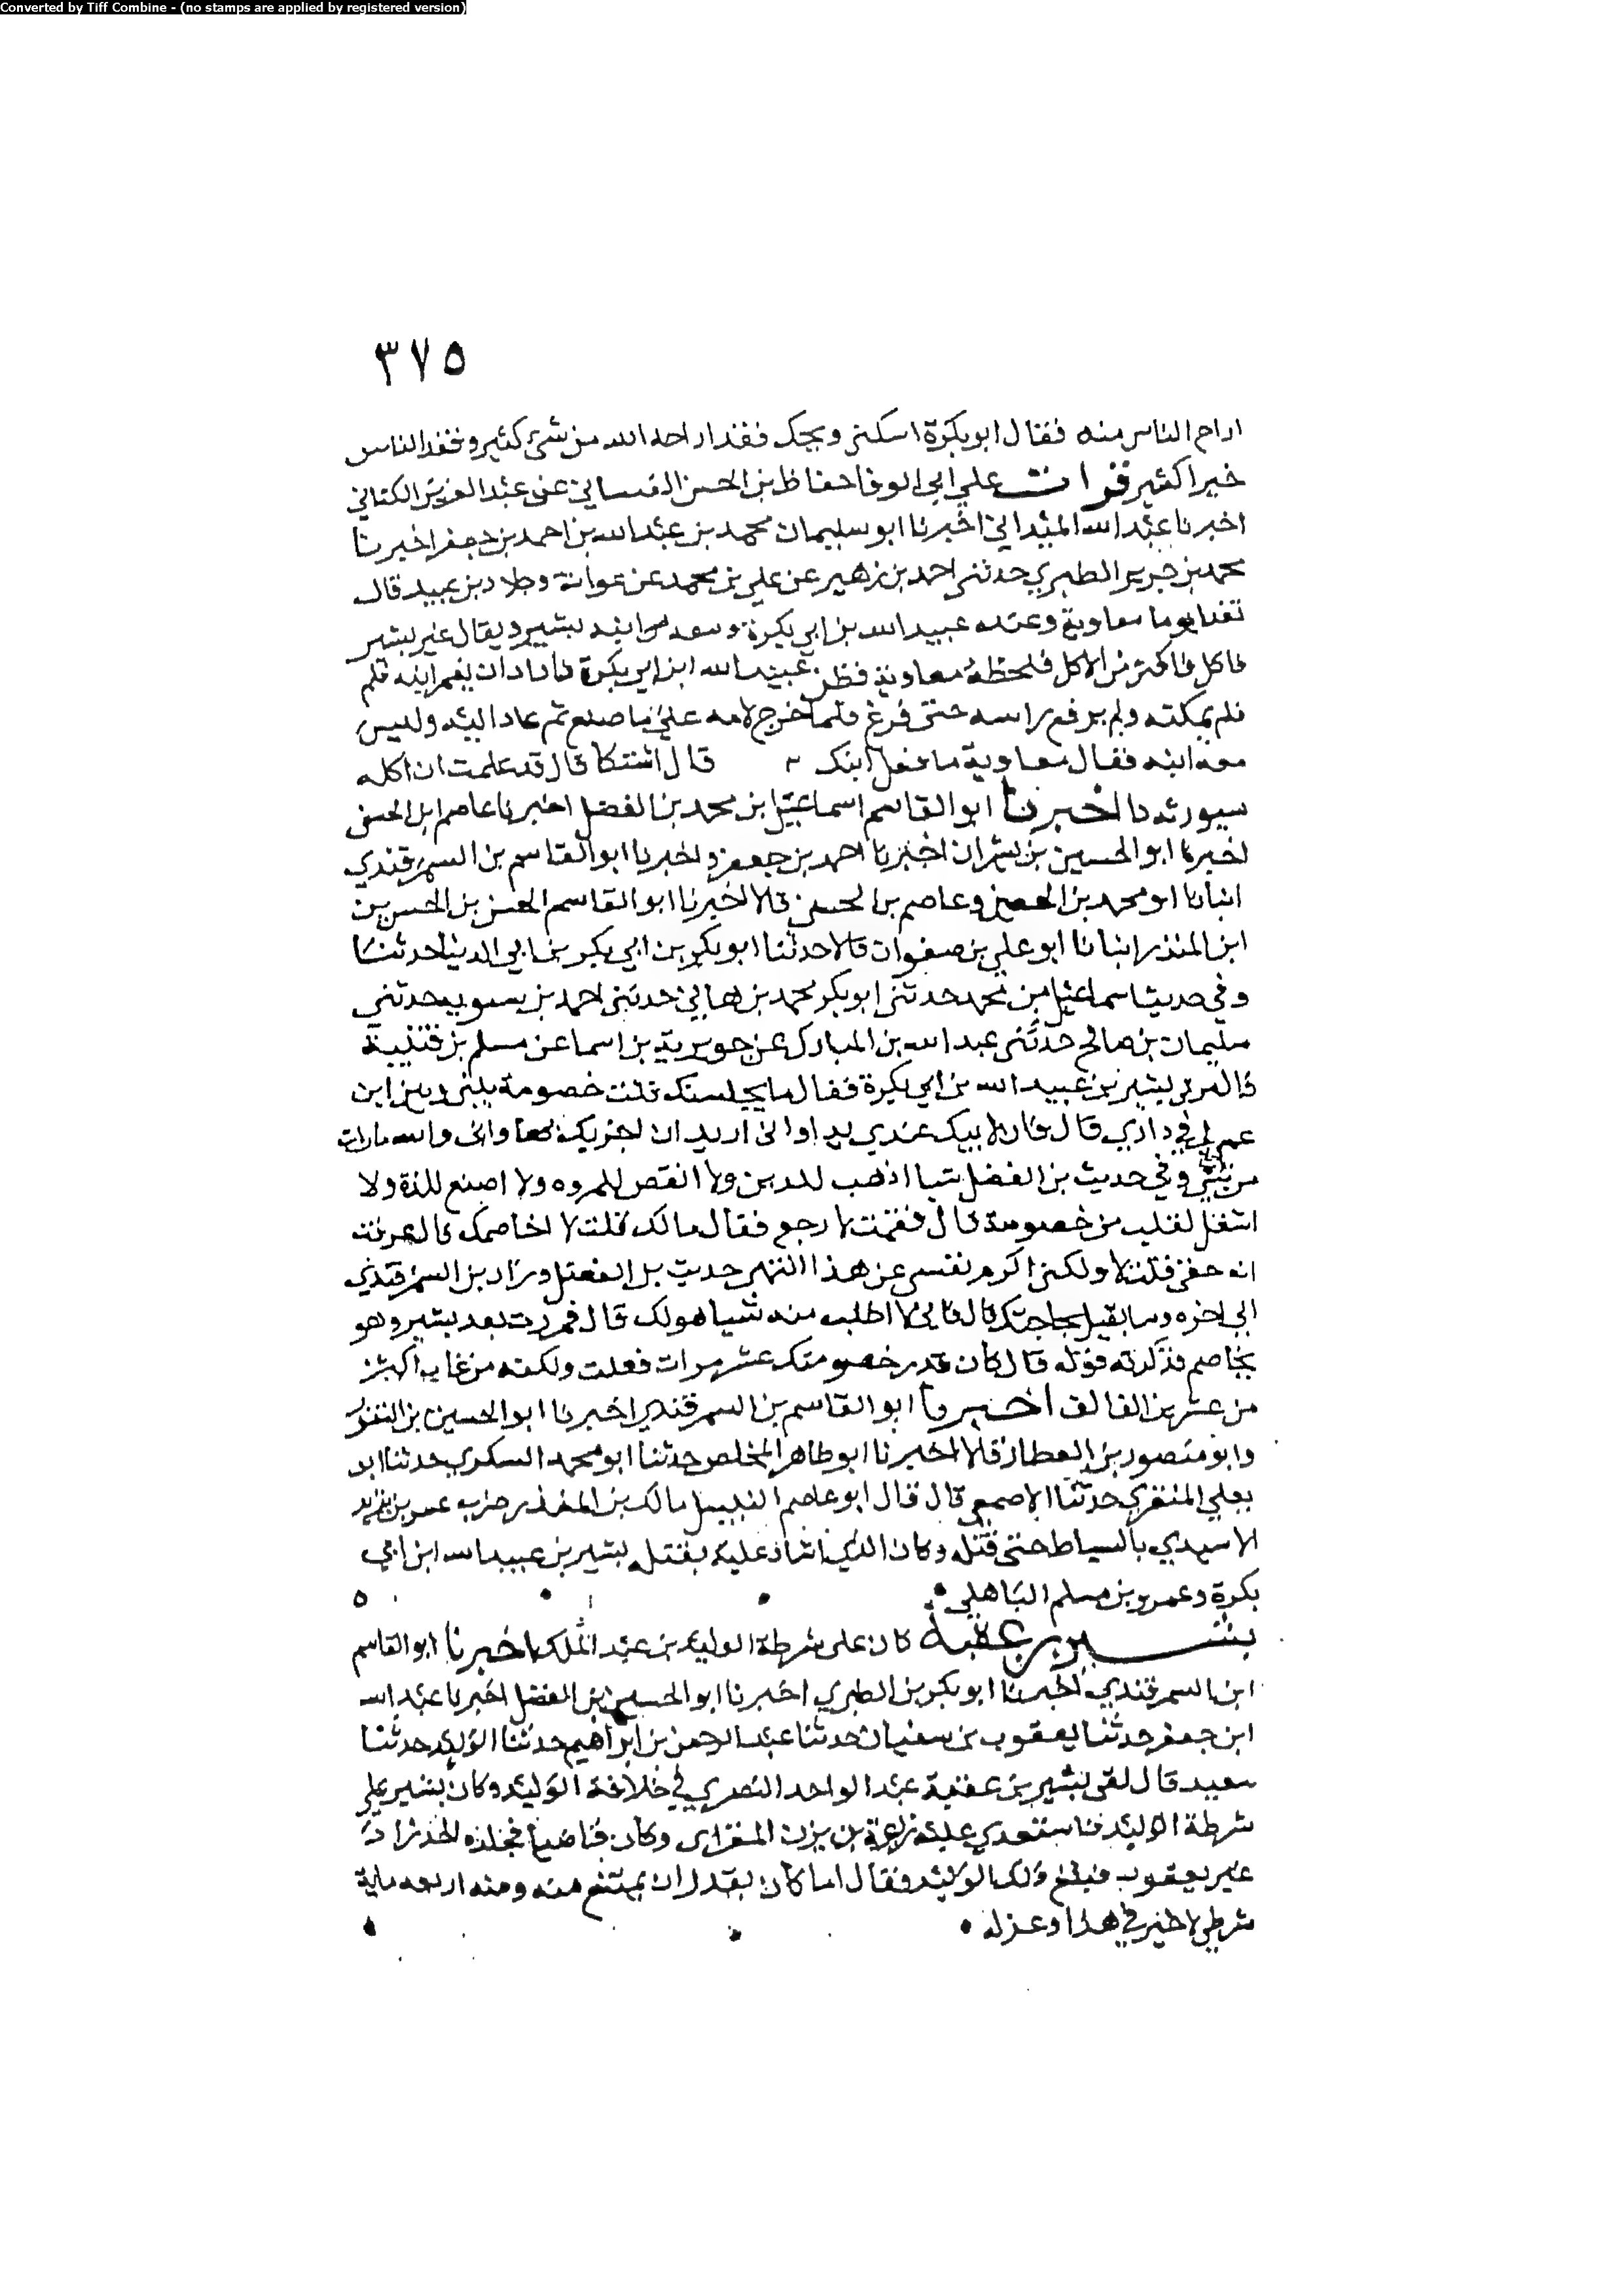 Converted by Tiff Combine - (no stamps are applied by registered version)
٣٧٥
اراح الناس منه فقال ابو بكرة اسكتى ويحك فقد اراحه الله من شئ كثير وفقد الناس
خيرا كثير قرات على ابي الوفا حفاظ بن الحسن الغساني عن عبد العزيز الكتاني
اخبرنا عبد الله الميداني اخبرنا ابو سليمان محمد بن عبد الله بن احمد بن جعفر اخبرنا
محمد بن جرير الطبري حدثني احمد بن زهير عن علي بن محمد عن عوانة وخلاد بن عبيد قال
تغدا يوما معاوية وعنده عبيد الله بن ابي بكرة ومعه ابنه بشير ويقال غير بشير
فاكل فاكثر من الاكل فلحظه معاوية فظن عبيد الله ابن ابي بكرة فاراد ان يغمز ابنه فلم
فلم يمكنه ولم يرفع راسه حتى فرغ فلما خرج لامه على ما صنع ثم عاد اليه وليس
معه ابنه فقال معاوية ما فعل ابنك قال اشتكا قال قد علمت ان اكله
سيورثه دا اخبرنا ابو القاسم اسماعيل بن محمد بن الفضل اخبرنا عاصم ابن الحسن
اخبرنا ابو الحسين بن بشران اخبرنا احمد بن جعفر واخبرنا ابو القاسم بن السمرقندي
انبانا ابو محمد بن وعاصم بن الحسن قالا اخبرنا ابو القاسم الحسن بن الحسن بن
ابن المنذر انبانا ابو علي بن صفوان قالا حدثنا ابو بكر بن ابي بكر بن ابي الدنيا حدثنا
وفي حديث اسماعيل بن محمد حدثني ابو بكر محمد بن هاني حدثني احمد بن حدثني
سليمان بن صالح حدثني عبد الله بن المبارك عن جويرية بن اسما عن مسلم بن قتيبة
قال مر بي بشير بن عبيد الله بن ابي بكرة فقال ما يجلسك قلت خصومة بيني وبين ابن
عم لي في داري قال فان لابيك عندي يدا واني اريد ان اجزيك بها واني والله ما رايت
من شي وفي حديث بن الفضل شيا اذهب للدين ولا انقص للمروه ولا اضيع للذة ولا
اشغل لقلب من خصومة قال فقمت لارجع فقال مالك قلت لا اخاصمك قال عرفت
انه حقي قلت لا ولكني اكرم نفسي عن هذا انتهى حديث بن الفضل وزاد بن السمرقندي
الى اخره وسابقيك بحاجتك قال فاني لا اطلب منه شيا هو لك قال فمررت بعد ببشير وهو
يخاصم فذكرته قوله قال لو كان قدر خصومتك عشر مرات فعلت ولكنه مرغاب اكثر
من عشرين الف الف اخبرنا ابو القاسم بن السمرقندي اخبرنا ابو الحسين بن النقور
وابو منصور بن العطار قالا اخبرنا ابو طاهر المخلص حدثنا ابو محمد السكري حدثنا ابو
يعلي المنقري حدثنا الاصمعي قال قال ابو عاصم النبيل مالك بن المنذر ضرب عمر بن يزيد
الاسيدي بالسياط حتى قتله وكان الذي اشار عليه بقتله بشير بن عبيد الله ابن ابي
بكرة وعمرو بن مسلم الباهلي
بشير بن عقبه كان على شرطة الوليد بن عبد الملك اخبرنا ابو القاسم
ابن السمرقندي اخبرنا ابو بكر بن الطبري اخبرنا ابو الحسين بن الفضل اخبرنا عبد الله
ابن جعفر حدثنا يعقوب بن سفيان حدثنا عبد الرحمن بن ابراهيم حدثنا الوليد حدثنا
سعيد قال لقى بشير بن عقبة عبد الواحد النصري في خلافة الوليد وكان بشير على
شرطة الوليد فاستعدي عليه زرعة بن وكان قاضيا فجلده الحد زاد
غير يعقوب فبلغ ذلك الوليد فقال اما كان يقدر ان يمتنع منه ومنه اربعه ماية
شرطي لا خير في هذا وعزله